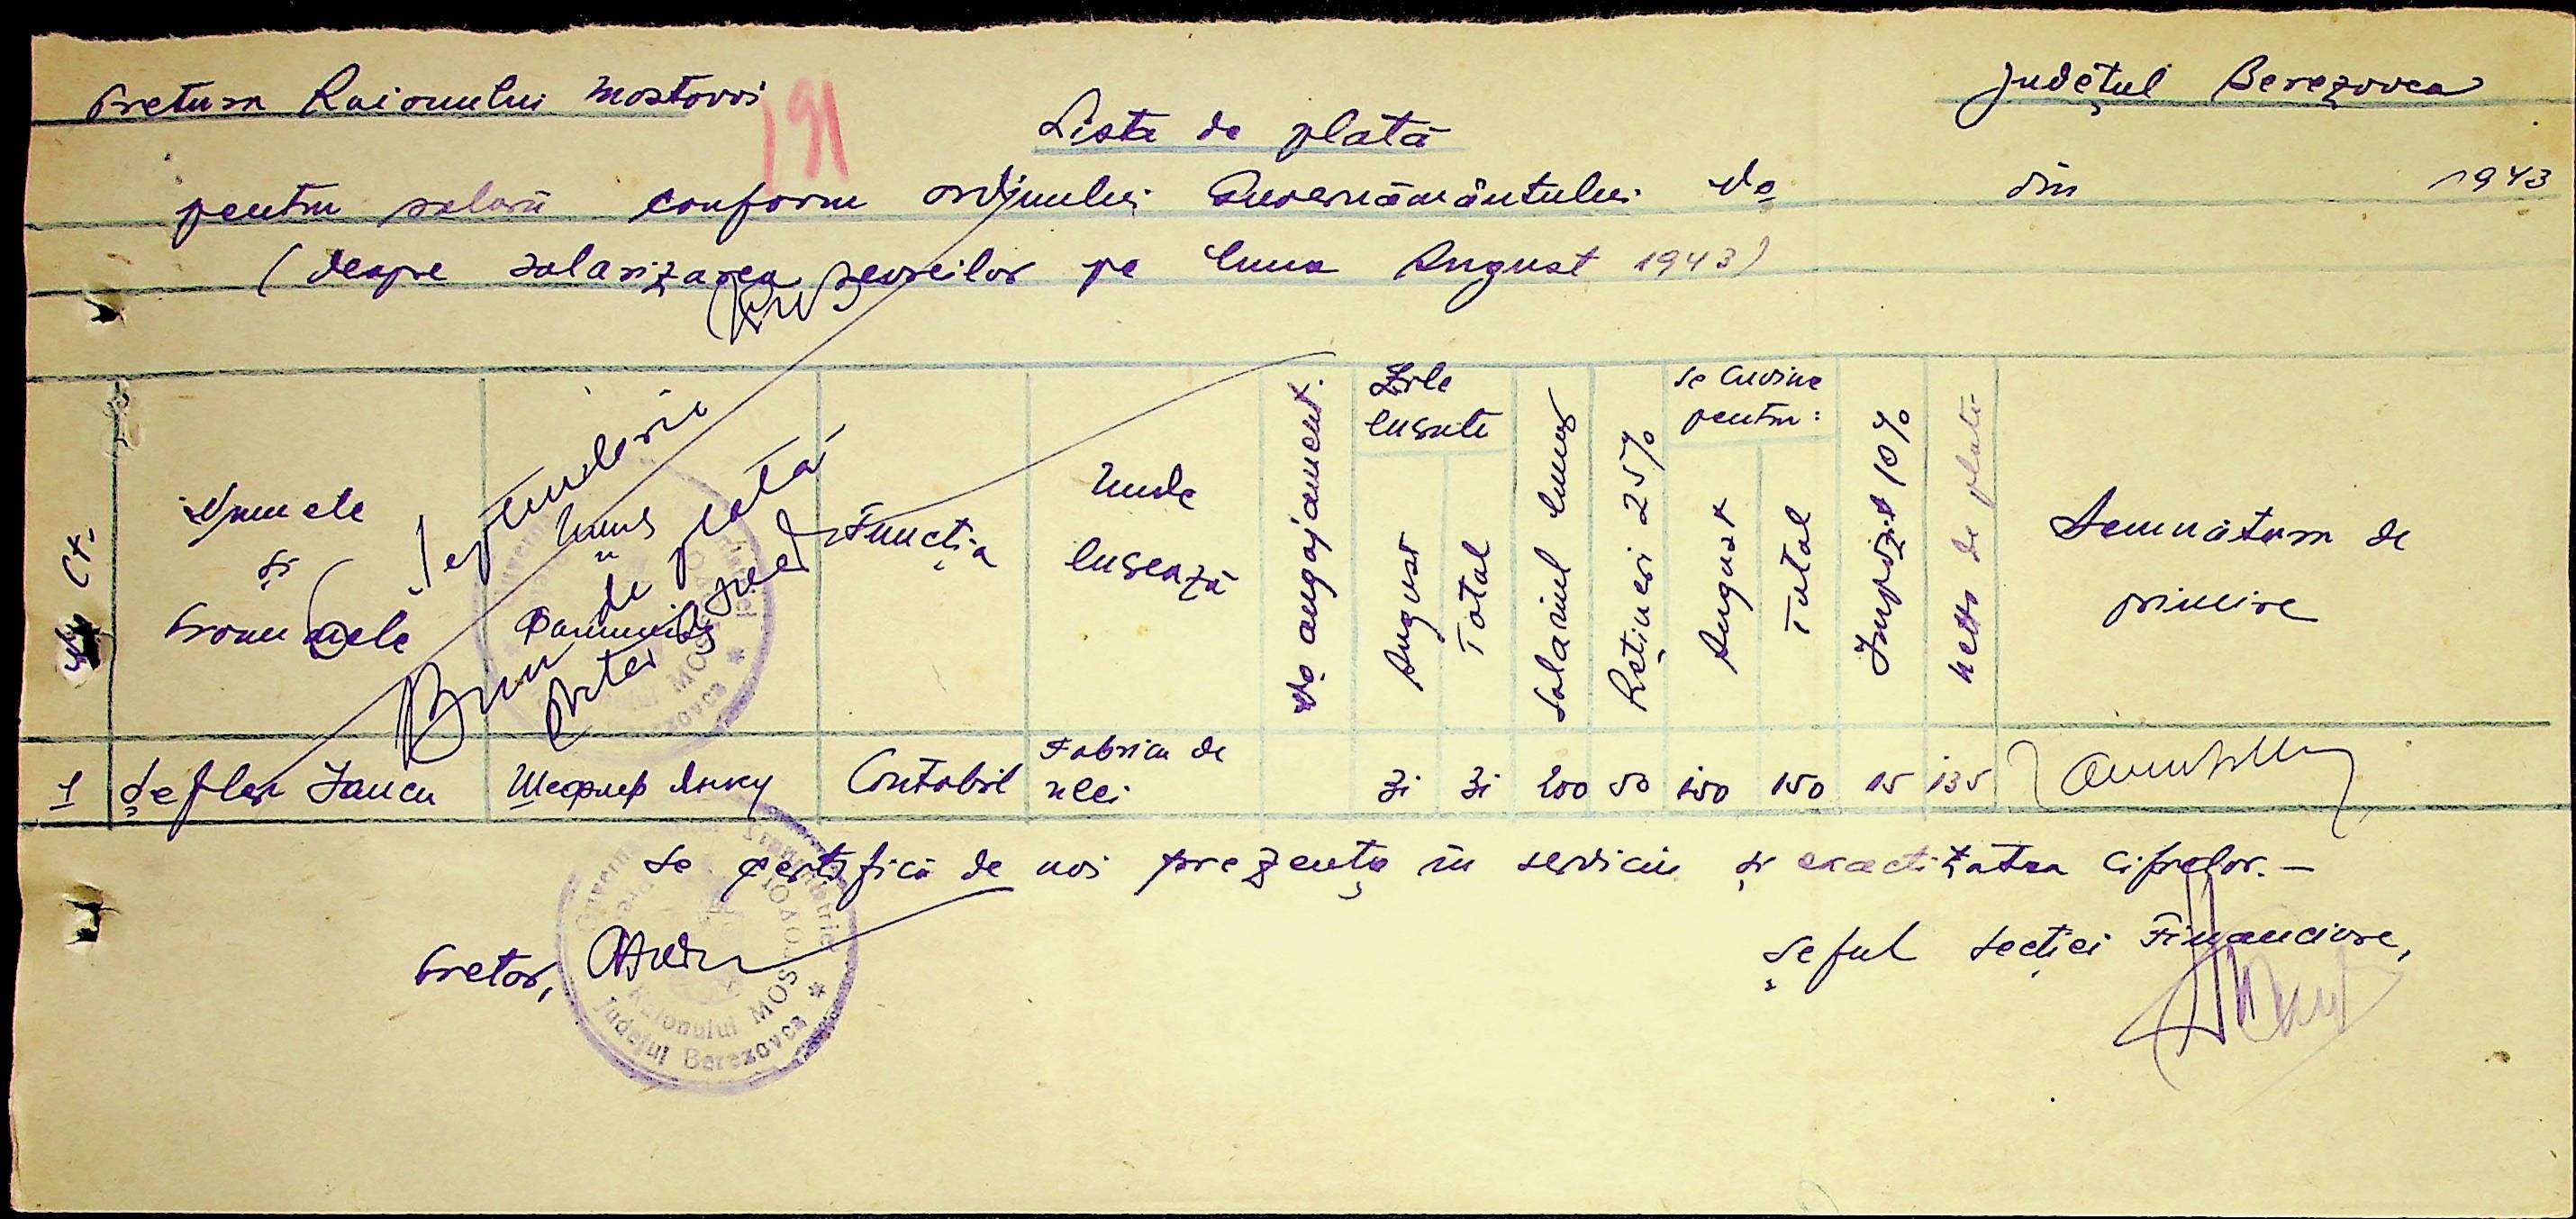 Pretura Raionului Mostovoi
Județul Berezovca
191
Lista de plată
pentru salarii conform ordinului Guvernământului No din 1943
(despre salarizarea evreilor pe luna August 1943)
No Ct.
Numele
și
Pronumele
Фамилия
Funcția
Unde
lucrează
No angajament.
Zile
lucrate
August
Total
Salariul lunar
Rețineri 25%
Se cuvine
pentru:
August
Total
Impozit 10%
Netto de plată
Semnătura de
primire
Septembrie
de plată
Bun
1 Șefler Iancu Шефлер Янку Contabil Fabrica de
ulei
31 31 200 50 150 150 15 135
Se certifică de noi prezența în serviciu și exactitatea cifrelor. –
Pretor,
Șeful Secției Financiare,
Guvernământul Transnistriei
Raionului MOSTOVOI
Județul Berezovca